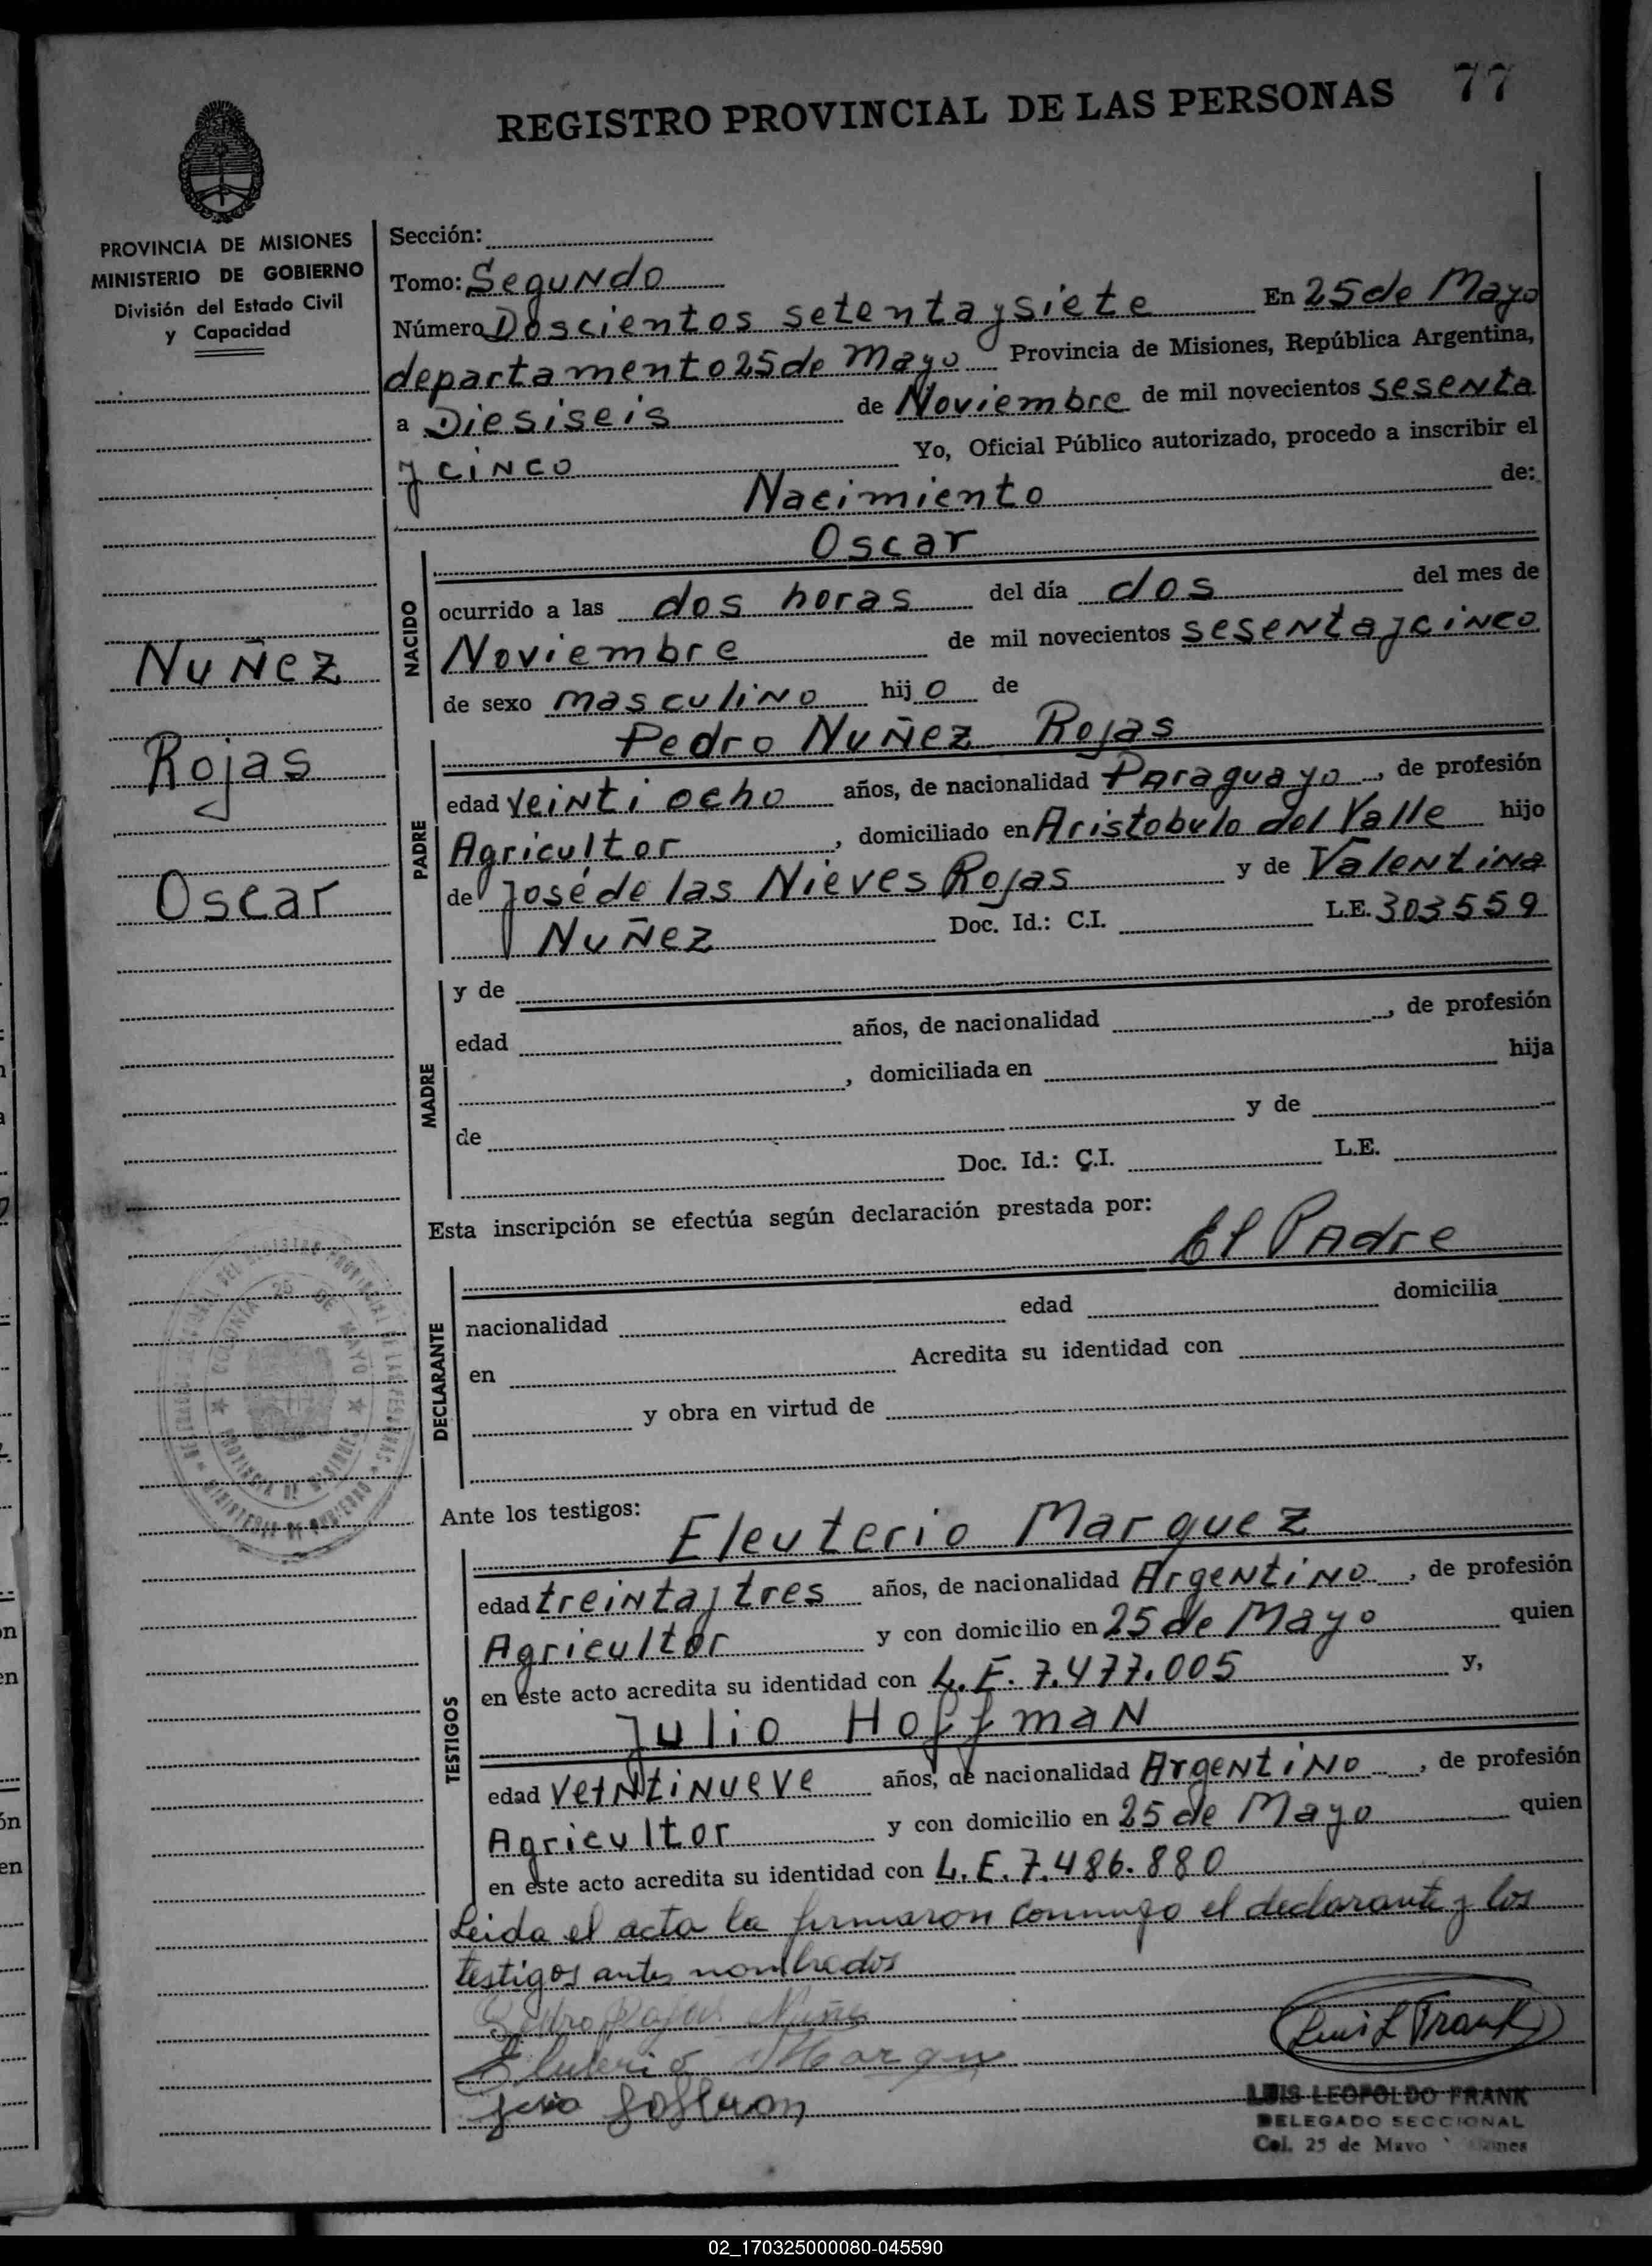 77
REGISTRO PROVINCIAL DE LAS PERSONAS
PROVINCIA DE MISIONES
MINISTERIO DE GOBIERNO
División del Estado Civil
y Capacidad
Sección:
Tomo: Segundo
Número Doscientos setenta y siete En 25 de Mayo
departamento 25 de Mayo Provincia de Misiones, República Argentina,
a Diesiseis de Noviembre de mil novecientos sesenta
y cinco Yo, Oficial Público autorizado, procedo a inscribir el
Nacimiento de:
Nuñez
Rojas
Oscar
NACIDO
Oscar
ocurrido a las dos horas del día dos del mes de
Noviembre de mil novecientos sesenta y cinco
de sexo masculino hijo de
PADRE
Pedro Nuñez Rojas
edad veinti ocho años, de nacionalidad Paraguayo, de profesión
Agricultor, domiciliado en Aristobulo del Valle hijo
de José de las Nieves Rojas y de Valentina
Nuñez Doc. Id.: C.I. L.E. 303559
MADRE
y de
edad años, de nacionalidad , de profesión
, domiciliada en hija
de y de
Doc. Id.: C.I. L.E.
Esta inscripción se efectúa según declaración prestada por:
El Padre
DECLARANTE
nacionalidad edad domicilia
en Acredita su identidad con
y obra en virtud de
COLONIA 25 DE MAYO
PROVINCIA DE MISIONES
MINISTERIO DE GOBIERNO
Ante los testigos:
TESTIGOS
Eleuterio Marquez
edad treinta y tres años, de nacionalidad Argentino, de profesión
Agricultor y con domicilio en 25 de Mayo quien
en este acto acredita su identidad con L.E. 7.477.005 y,
Julio Hoffman
edad veintinueve años, de nacionalidad Argentino, de profesión
Agricultor y con domicilio en 25 de Mayo quien
en este acto acredita su identidad con L.E. 7.486.880
Leida el acta la firmaron conmigo el declarante y los
testigos antes nombrados
Pedro Rojas Nuñez
Luis L Frank
LUIS LEOPOLDO FRANK
DELEGADO SECCIONAL
Col. 25 de Mayo
02_170325000080-045590